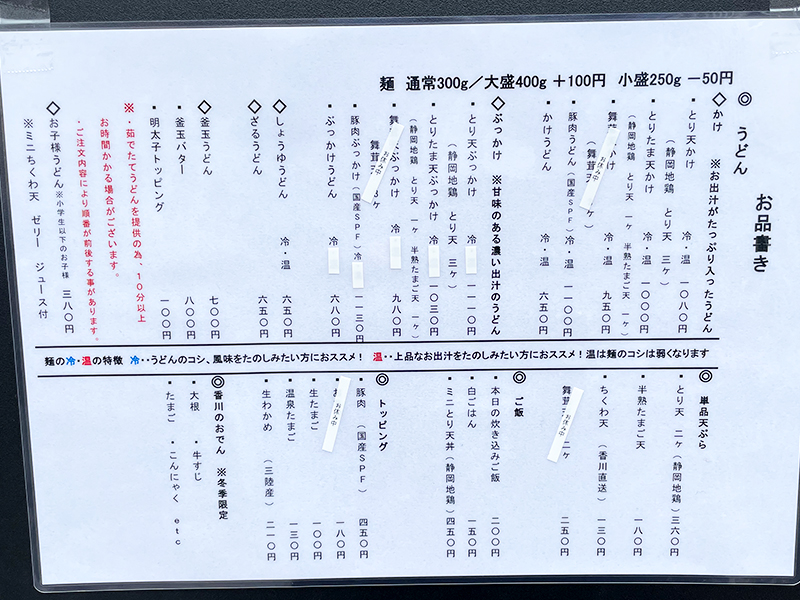 麺 通常300g／大盛400g ＋100円 小盛250g －50円
お品書き
◎ うどん
◇かけ ※お出汁がたっぷり入ったうどん
・とり天かけ 冷・温 一〇八〇円
（静岡地鶏 とり天 三ヶ）
・とりたま天かけ 冷・温 一〇〇〇円
（静岡地鶏 とり天 一ヶ 半熟たまご天 一ヶ）
・舞茸 冷・温 九五〇円
（舞茸 ヶ）
お休み中
・豚肉うどん（国産ＳＰＦ） 冷・温 一一〇〇円
・かけうどん 冷・温 六五〇円
◇ぶっかけ ※甘味のある濃い出汁のうどん
・とり天ぶっかけ 冷 一一一〇円
（静岡地鶏 とり天 三ヶ）
・とりたま天ぶっかけ 冷 一〇三〇円
（静岡地鶏 とり天 一ヶ 半熟たまご天 一ヶ）
・舞 天ぶっかけ 冷 九八〇円
（舞茸 ヶ）
お休み中
・豚肉ぶっかけ（国産ＳＰＦ） 冷 一一三〇円
・ぶっかけうどん 冷 六八〇円
◇しょうゆうどん 冷・温 六五〇円
◇ざるうどん 六五〇円
◇釜玉うどん 七〇〇円
・釜玉バター 八〇〇円
・明太子トッピング 一〇〇円
※・茹でたてうどんを提供の為、１０分以上
お時間かかる場合がございます。
・ご注文内容により順番が前後する事があります。
◇お子様うどん※小学生以下のお子様 三八〇円
※ミニちくわ天 ゼリー ジュース付
麺の冷・温の特徴 冷・・うどんのコシ、風味をたのしみたい方におススメ！ 温・・上品なお出汁をたのしみたい方におススメ！温は麺のコシは弱くなります
◎ 単品天ぷら
・とり天 二ヶ（静岡地鶏） 三六〇円
・半熟たまご天 一八〇円
・ちくわ天 （香川直送） 一三〇円
舞茸 二ヶ 二五〇円
お休み中
◎ ご飯
・本日の炊き込みご飯 二〇〇円
・白ごはん 一五〇円
・ミニとり天丼（静岡地鶏） 四五〇円
◎ トッピング
・豚肉 （国産ＳＰＦ） 四五〇円
・お 一八〇円
お休み中
・生たまご 一〇〇円
・温泉たまご 一三〇円
・生わかめ （三陸産） 二一〇円
◎香川のおでん ※冬季限定
・大根 ・牛すじ
・たまご ・こんにゃく ｅｔｃ